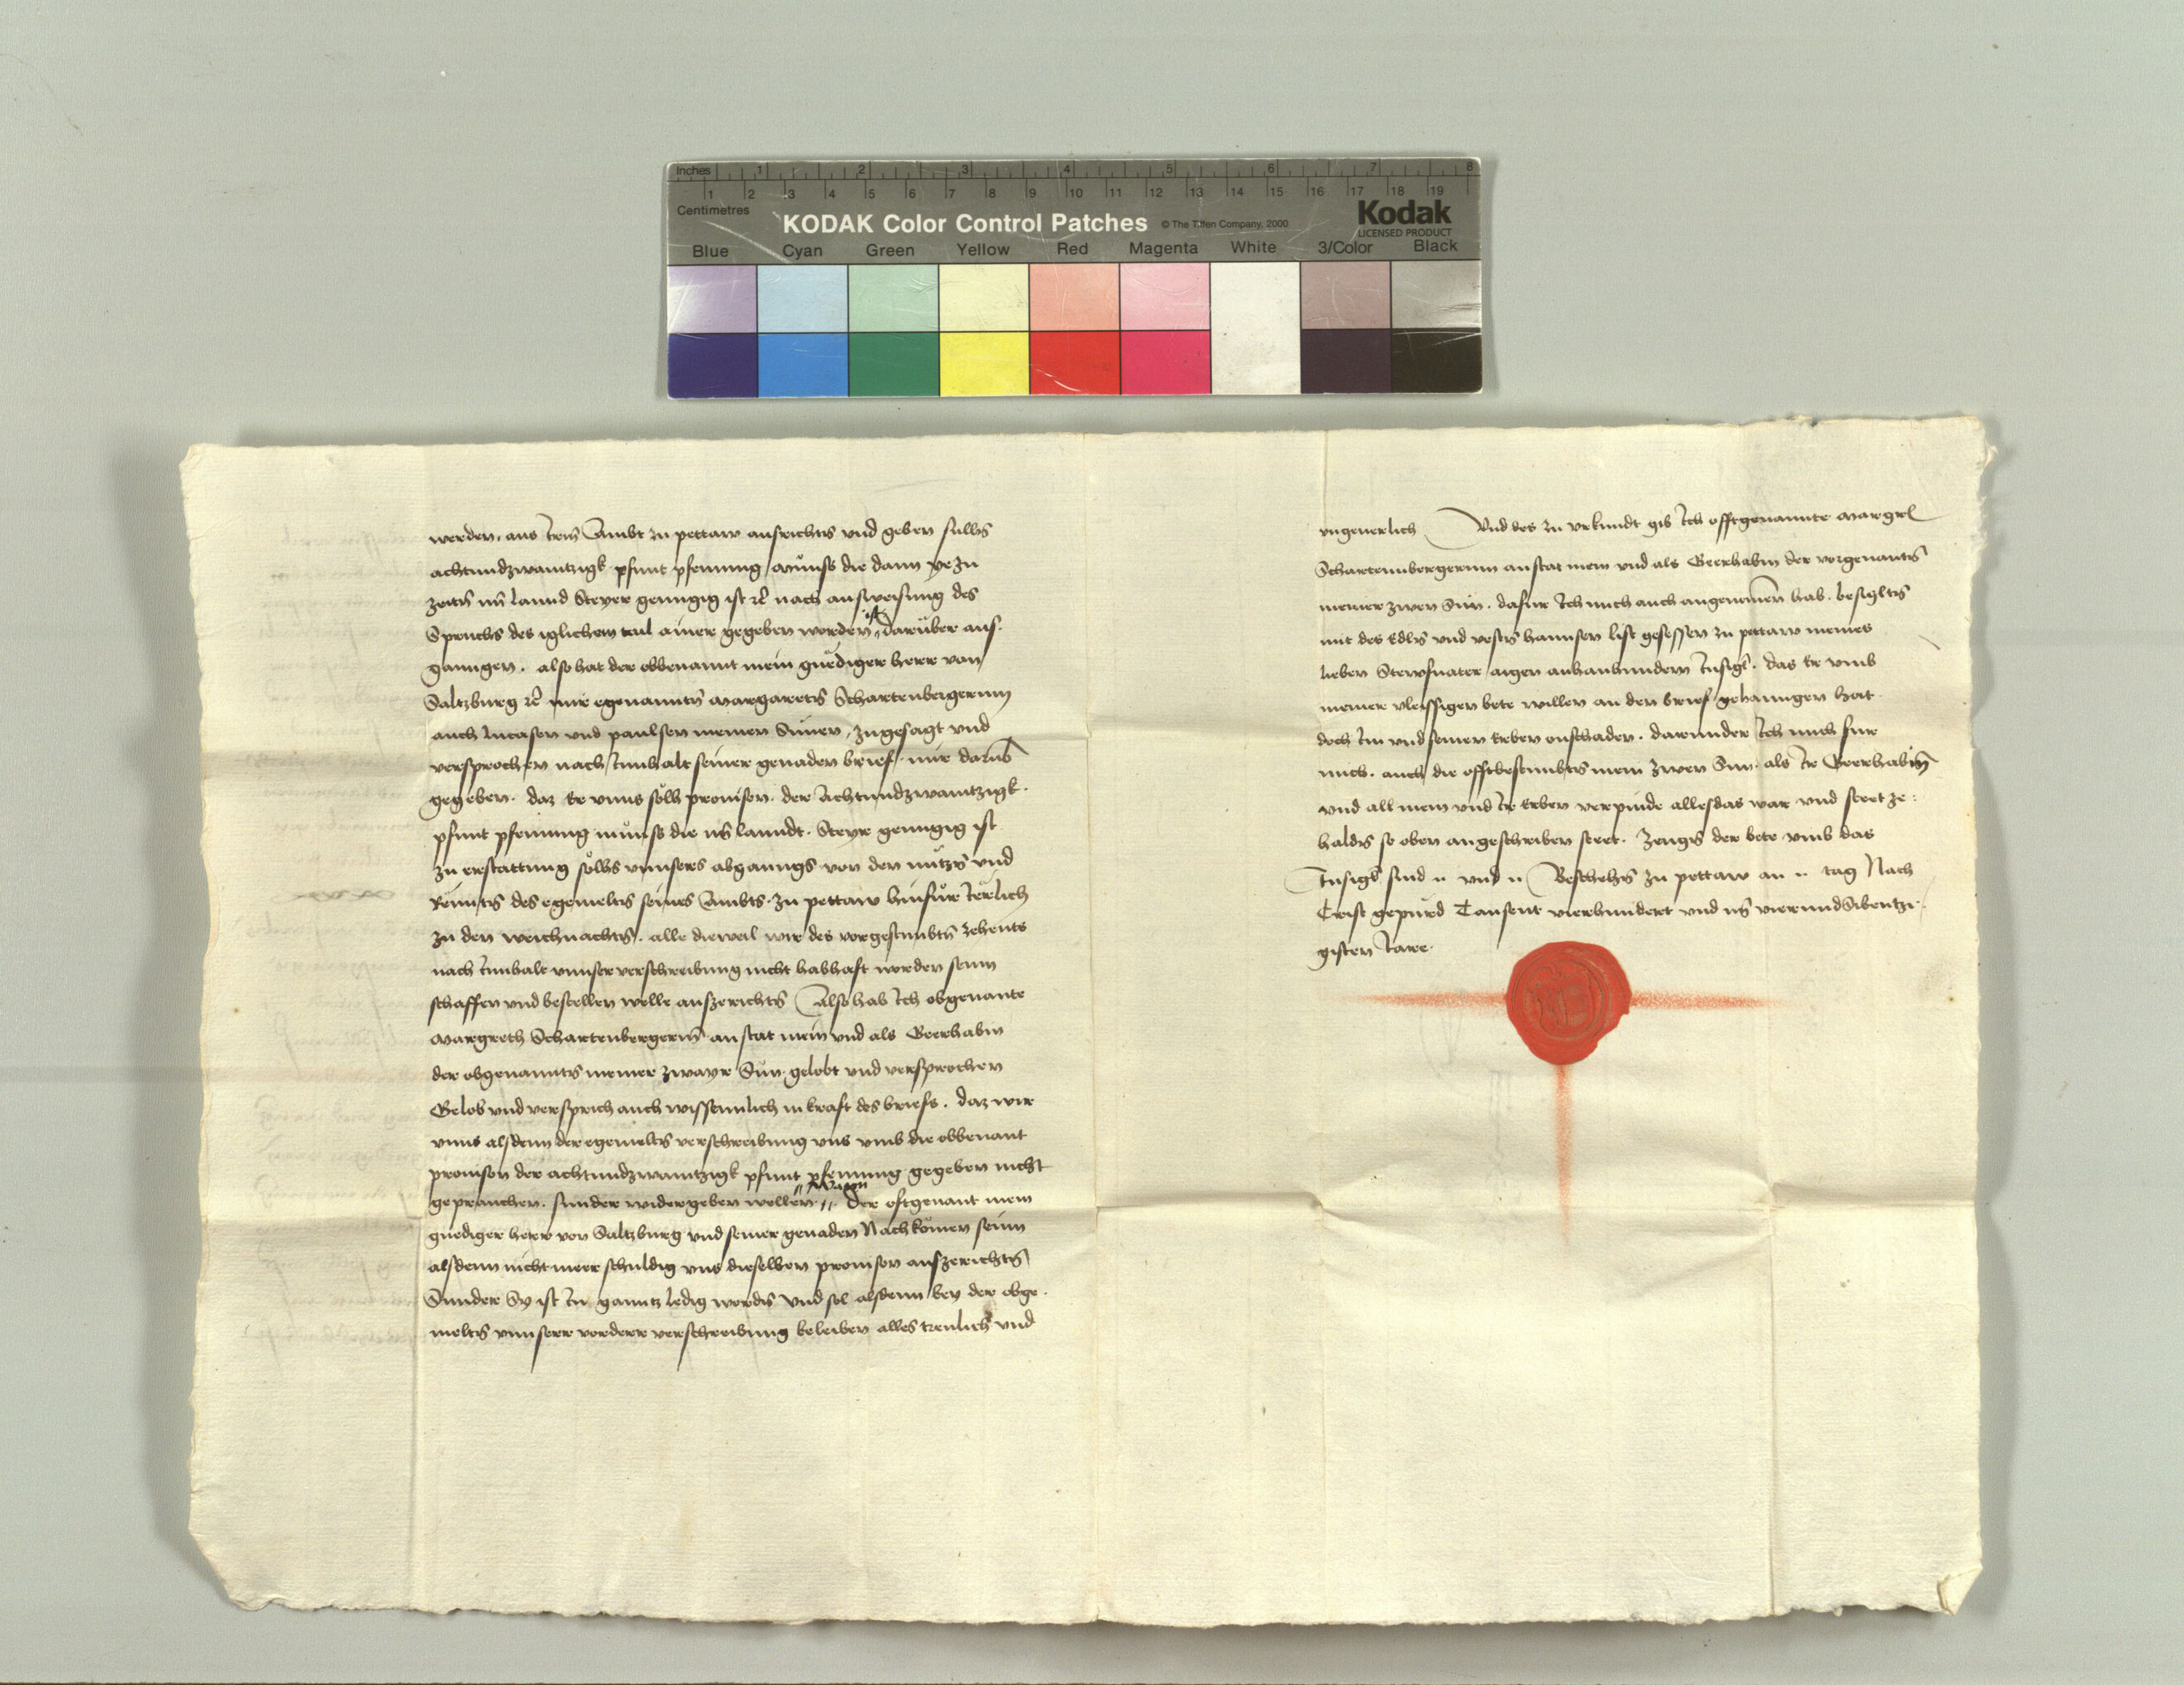 Inches 1 2 3 4 5 6 7 8
1 2 3 4 5 6 7 8 9 10 11 12 13 14 15 16 17 18 19
Centimetres
KODAK Color Control Patches © The Tiffen Company, 2000 Kodak
LICENSED PRODUCT
Blue Cyan Green Yellow Red Magenta White 3/Color Black
werden. aus irem Ambt zu pettaw ausrichten vnd geben sullen
achtundzwaintzigk pfunt pfenning munss die dann ye zu
zeiten im lannd Steyer genngig ist etc nach ausweisung des
Spruchs des iglichem tail ainer gegeben worden ist darüber aus-
ganngen. also hat der obbenannt mein gnediger herr von
Saltzburg etc mir egenannten Margareten Schartenbergerinn
auch lucasen vnd paulsen meinen Sünen. zugesagt vnd
versprochen nach Innhalt seiner genaden brief. mir darumb
gegeben. daz Er vnns sölh prouison. der Achtundzwaintzigk.
pfunt pfenning münss die in lanndt. Steyr genngig ist
zu erstattung sölhs vnnsers abganngs von den nützen vnd
Rennten des egemelten seines Ambts. zu pettaw hinfür Jerlich
zu den weichnachten. alle dieweil wir des vorgestimbten zehents
nach Innhalt vnnser verschreibung nicht habhaft worden seinn
schaffen vnd bestellen welle auszerichten Also hab Ich obgenante
Margreth Schartenbergerin an stat mein vnd als Gerhabin
der obgenannten meiner zwayr Sün. gelobt vnd versprochen
Gelob vnd versprich auch wissenntlich in kraft des briefs. daz wir
vnns alsdenn der egemelten verschreibung vns vmb die obbenant
prouison der achtundzwaintzigk pfunt pfenning gegeben nicht
geprauchen. sunder widergeben wellen. wann der oftgenant mein
gnediger herr von Saltzburg vnd seiner genaden Nachkömen seinn
alsdenn nicht meer schuldig vns dieselben prouison auszerichten
Sunder Sy ist in ganntz ledig worden vnd sol alsdenn bey der obge-
melten vnnserr vorderr verschreibung beleiben alles treulich vnd
vngeuerlich Vnd des zu vrkundt gib Ich offtgenannte Margret
Schartennbergerinn anstat mein vnd als Gerhabin der vorgenanten
meiner zwen Sün. dafur Ich mich auch angenomen hab. besiglten
mit des Edlen vnd vesten hannsen list gesessen zu pettaw meines
lieben Stewfuater aigen anhanngundem Insigl. das Er vmb
meiner vleissigen bete willen an den brief gehanngen hat.
doch im vnd seinen Erben onschaden. darunder Ich mich fur
mich. auch die offtbestimbten mein zwen Sun. als Ir Gerhabin
vnd all mein vnd Ir Erben verpinde alles das war vnd steet ze:
halden so oben angeschriben steet. Zeugen der bete vmb das
Insigl sind n vnd n Beschehen zu pettaw an n tag Nach
Crist gepürd Tausent vierhundert vnd in vierundSibentzi-
gisten Jare.